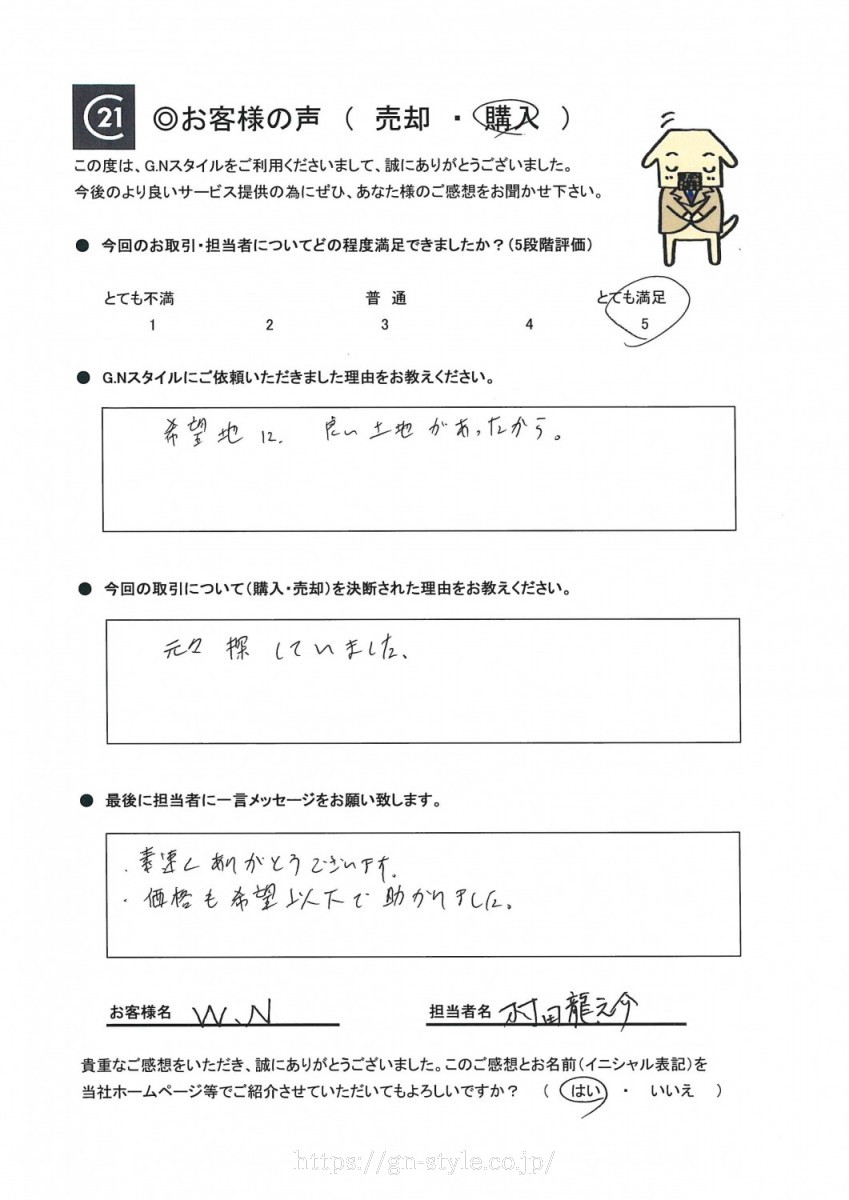 21 ◎お客様の声 ( 売却 ・ 購入 )
この度は、G.Nスタイルをご利用くださいまして、誠にありがとうございました。
今後のより良いサービス提供の為にぜひ、あなた様のご感想をお聞かせ下さい。
● 今回のお取引・担当者についてどの程度満足できましたか？(5段階評価)
とても不満 普 通 とても満足
1 2 3 4 5
● G.Nスタイルにご依頼いただきました理由をお教えください。
希望地に、良い土地があったから。
● 今回の取引について(購入・売却)を決断された理由をお教えください。
元々探していました、
● 最後に担当者に一言メッセージをお願い致します。
・素速くありがとうございます。
・価格も希望以下で助かりました。
お客様名 W、N 担当者名 村田龍之介
貴重なご感想をいただき、誠にありがとうございました。このご感想とお名前(イニシャル表記)を
当社ホームページ等でご紹介させていただいてもよろしいですか？ ( はい ・ いいえ )
https://gn-style.co.jp/